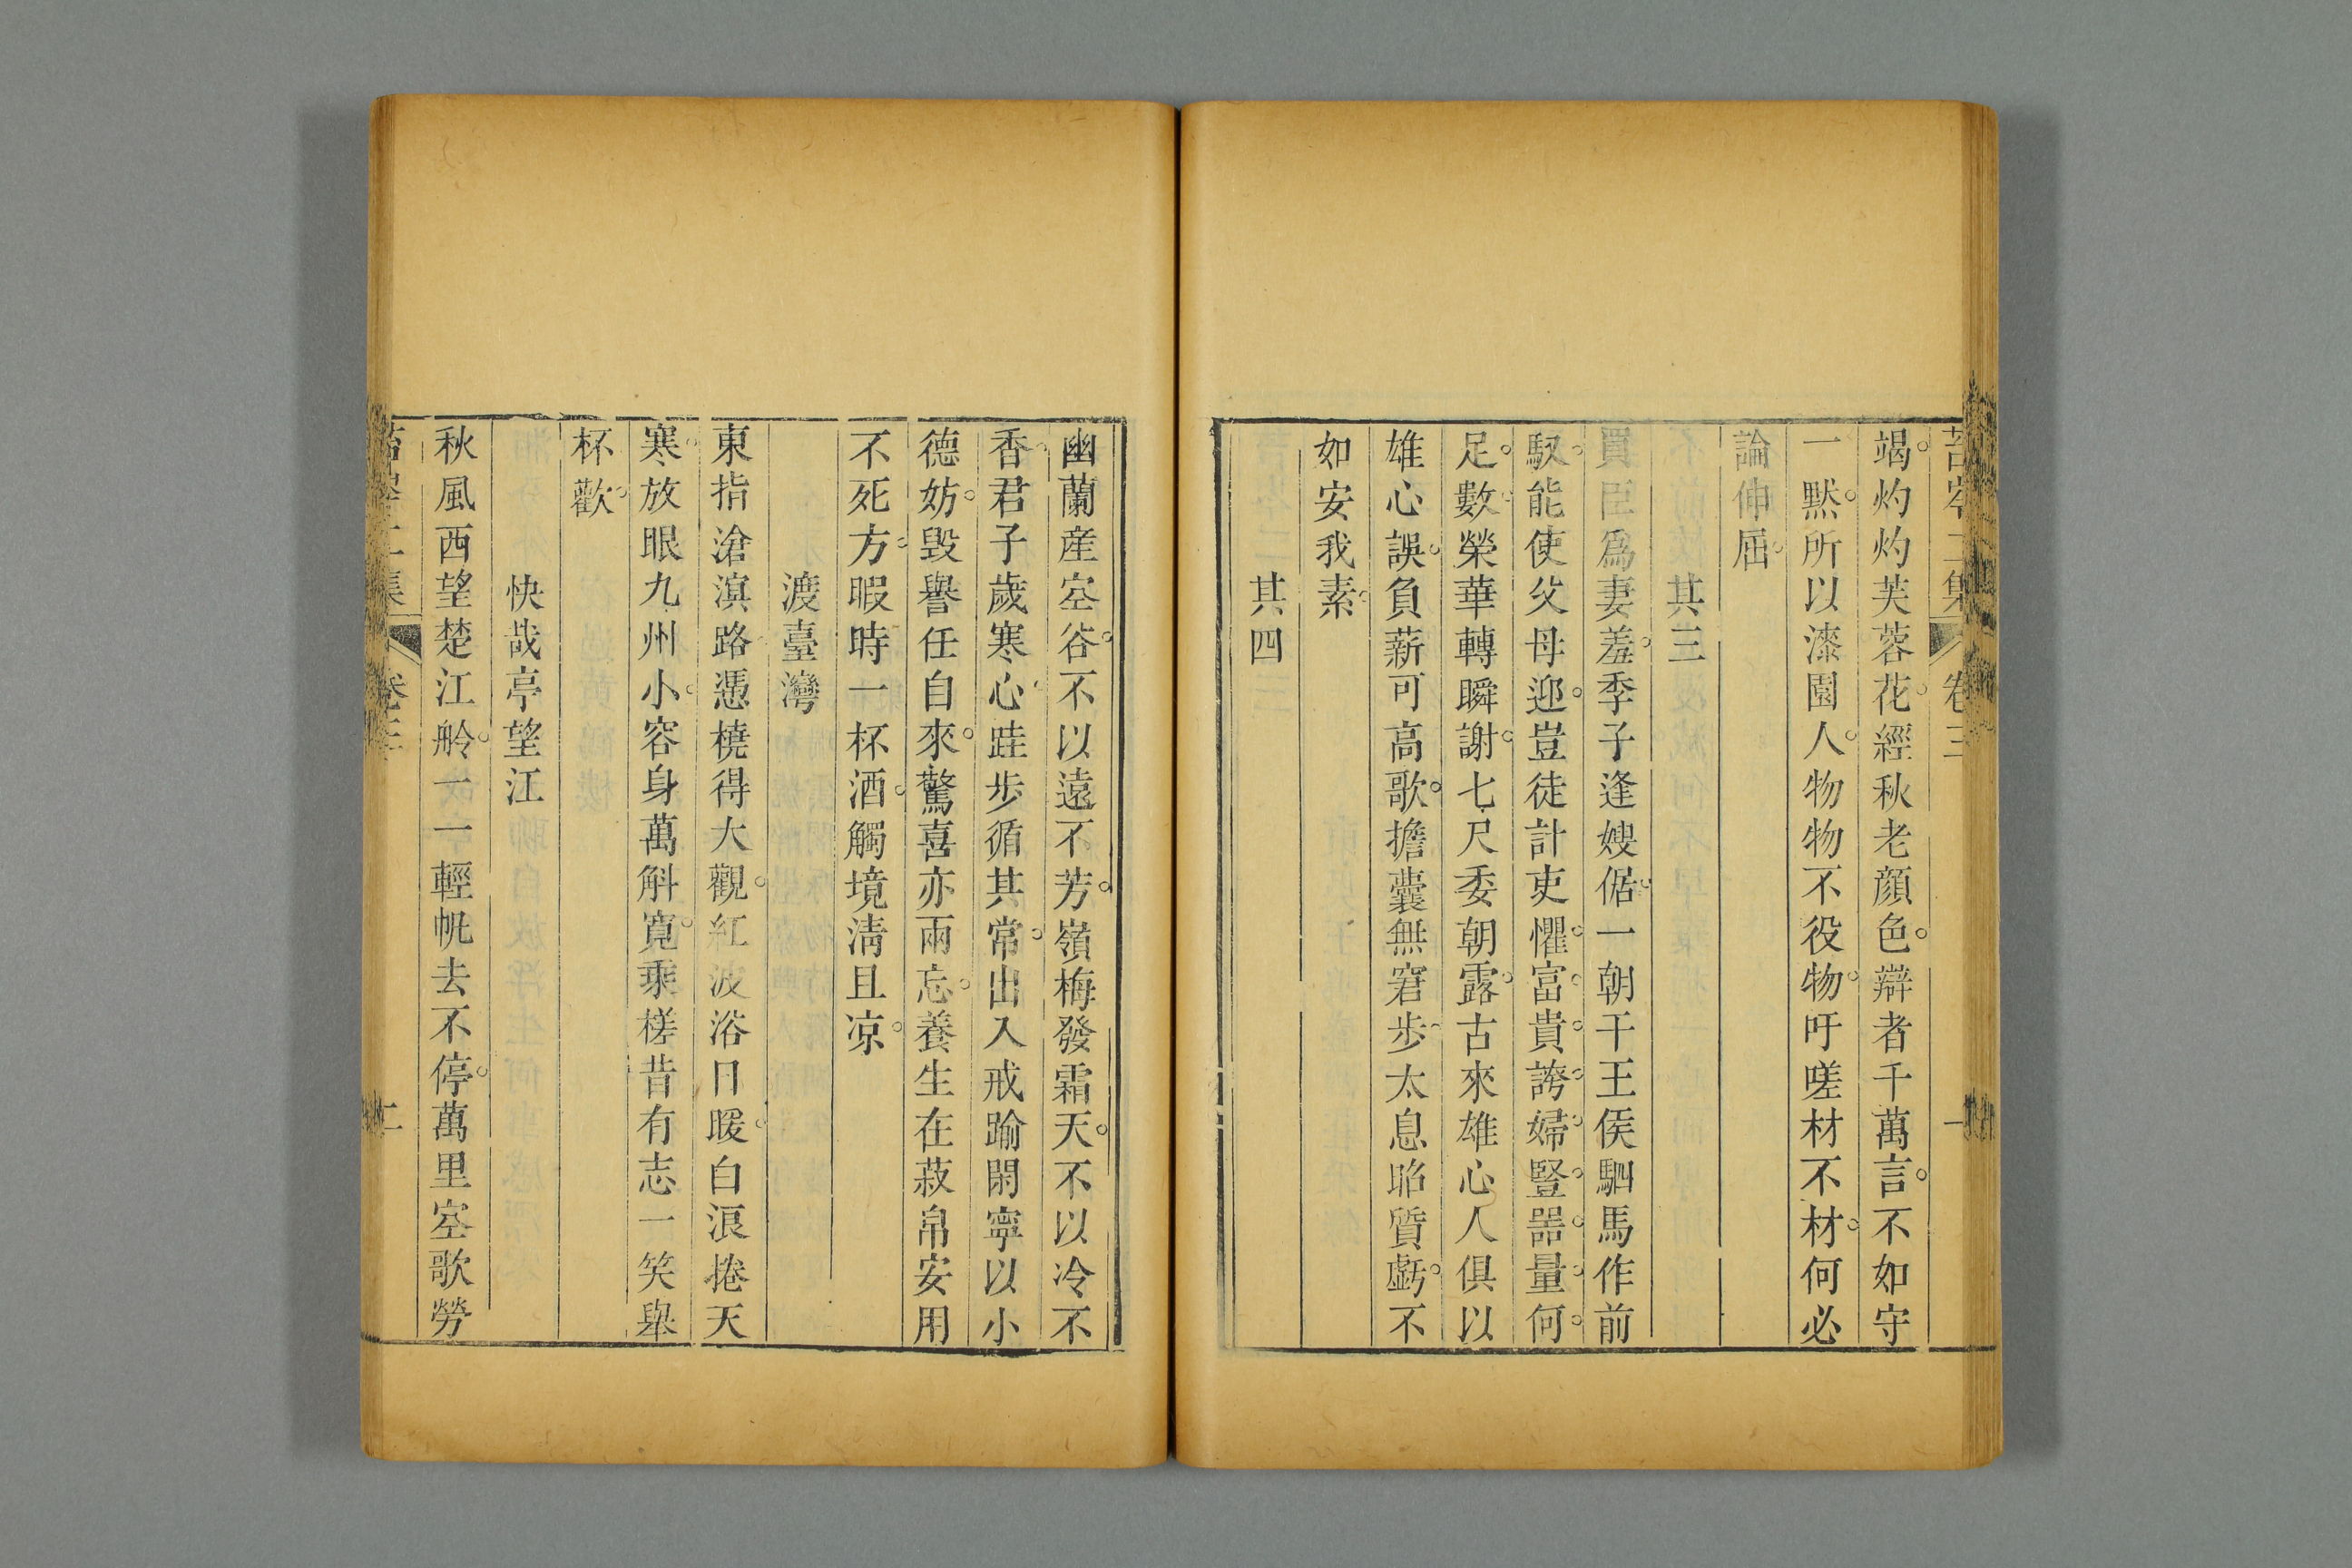 竭灼灼芙蓉花經秋老顔色辯者千萬言不如守
一黙所以漆園人物物不役物吁嗟材不材何必
論伸屈
其三
買臣爲妻羞季子逢嫂倨一朝干王侯駟馬作前
馭能使父母迎豈徒計吏懼富貴誇婦豎噐量何
足數榮華轉瞬謝七尺委朝露古來雄心人俱以
雄心誤負薪可高歌擔囊無窘步太息昭質虧不
如安我素
其四
幽蘭産空谷不以遠不芳嶺梅發霜天不以冷不
香君子歲寒心跬步循其常出入戒踰閑寧以小
德妨毁譽任自來驚喜亦兩忘養生在菽帛安用
不死方暇時一杯酒觸境清且凉
渡臺灣
東指滄溟路憑橈得大觀紅波浴日暖白浪捲天
寒放眼九州小容身萬斛寬乘槎昔有志一笑舉
杯歡
快哉亭望江
秋風西望楚江舲一一輕帆去不停萬里空歌勞